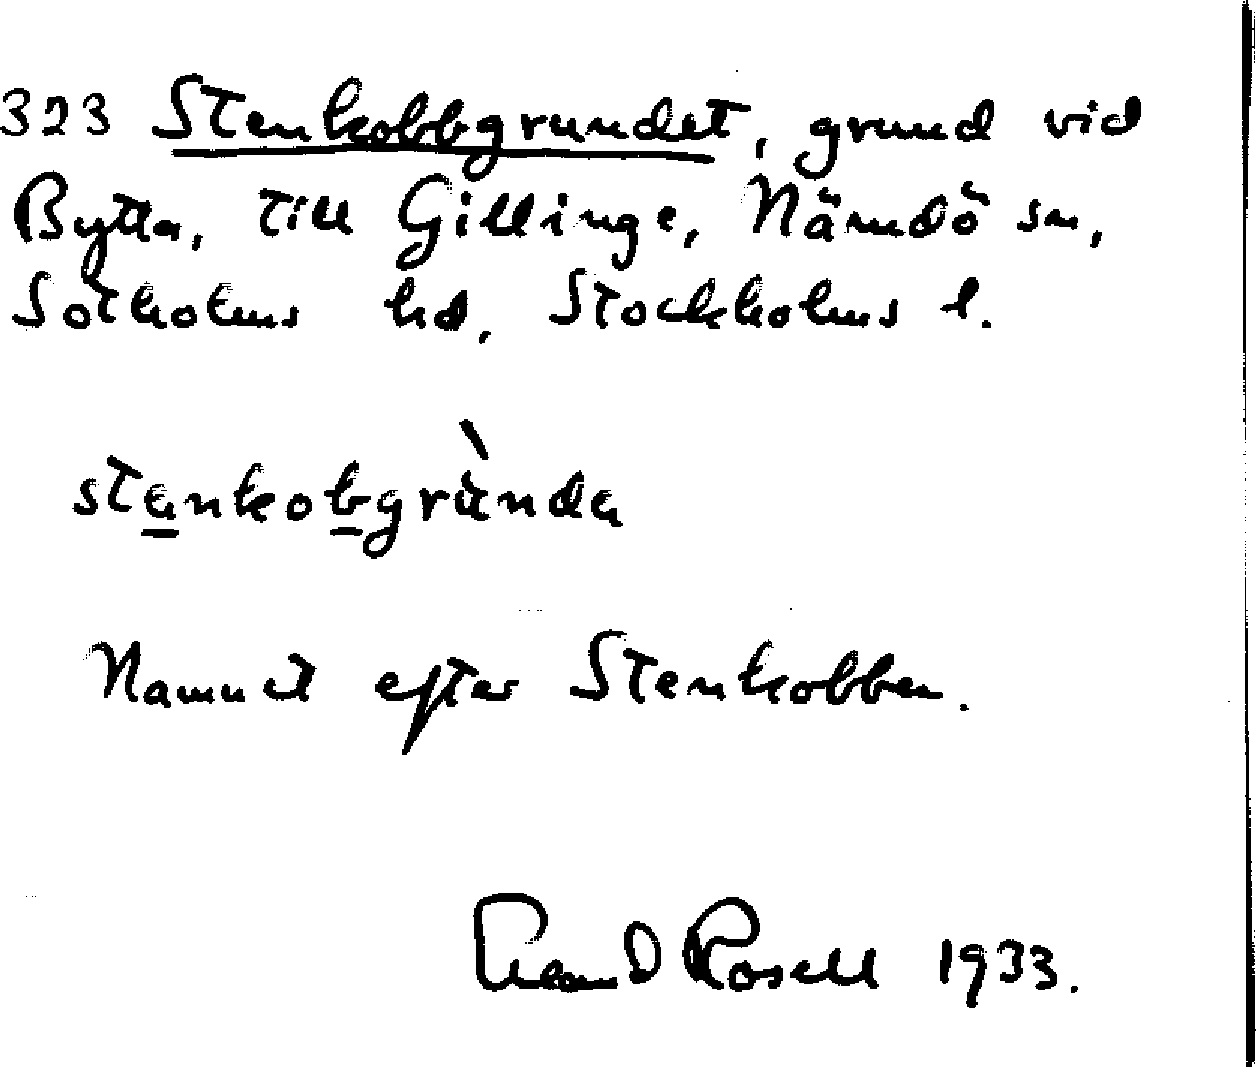 323 Stenkobbgrundet, grund vid
Bytta, till Gillinge, Nämdö sn,
Sotholms hd, Stockholms l.
stenkobgrùnda
Namnet efter Stenkobben.
Rosell 1933.